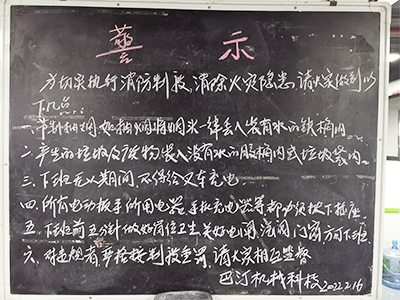 警示
为切实执行消防制度,消除火灾隐患,请大家做到以
下几点:
一.车间抽烟,如抽烟将烟头一律丢入装有水的铁桶内。
二.产生的垃圾及废物装入没有水的胶桶内或垃圾袋内。
三.下班无人期间,不得给叉车充电
四.所有电动扳手所用电器手机充电器等都必须拔下插座。
五.下班前五分钟做好岗位卫生关好电闸,汽阀,门窗方可下班
六.对违规者,严格按制度查罚,请大家相互监督
巴汀机械科技2022.2.16